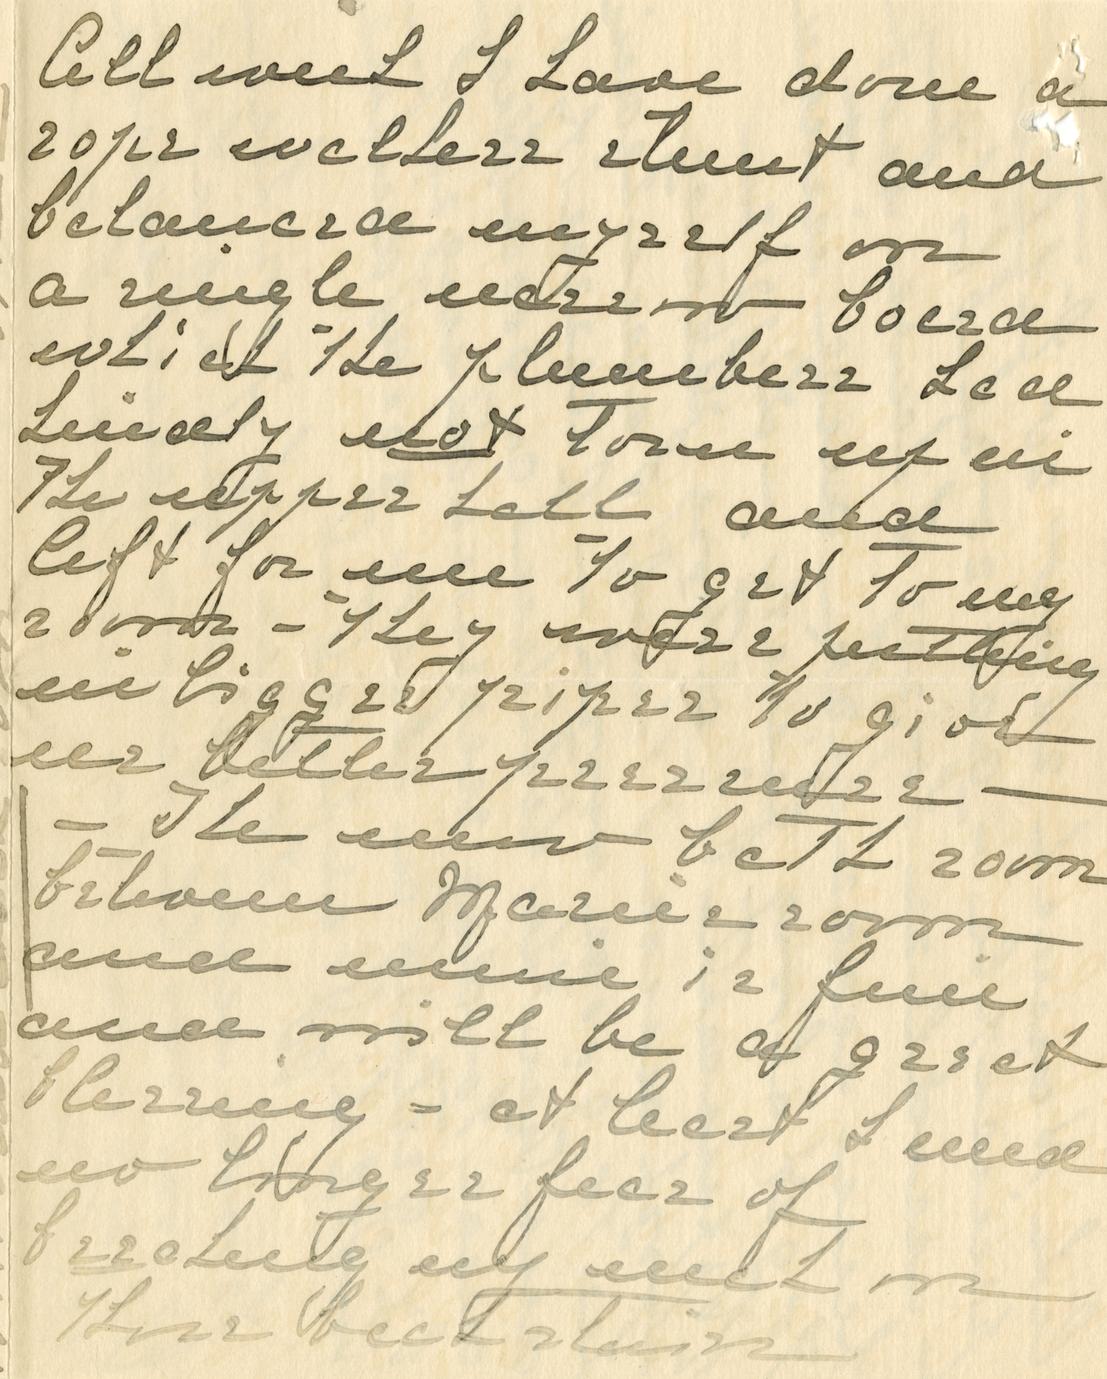 All week I have done a
rope walkers stunt and
balanced myself on
a single narrow board
which the plumbers had
kindly not torn up in
the upper hall and
left for me to get to my
room - They were putting
in bigger pipes to give
us better pressure —
- The new bath room
between Maries room
and mine is fine
and will be a great
blessing - at least I need
no longer fear of
breaking my neck on
those back stairs